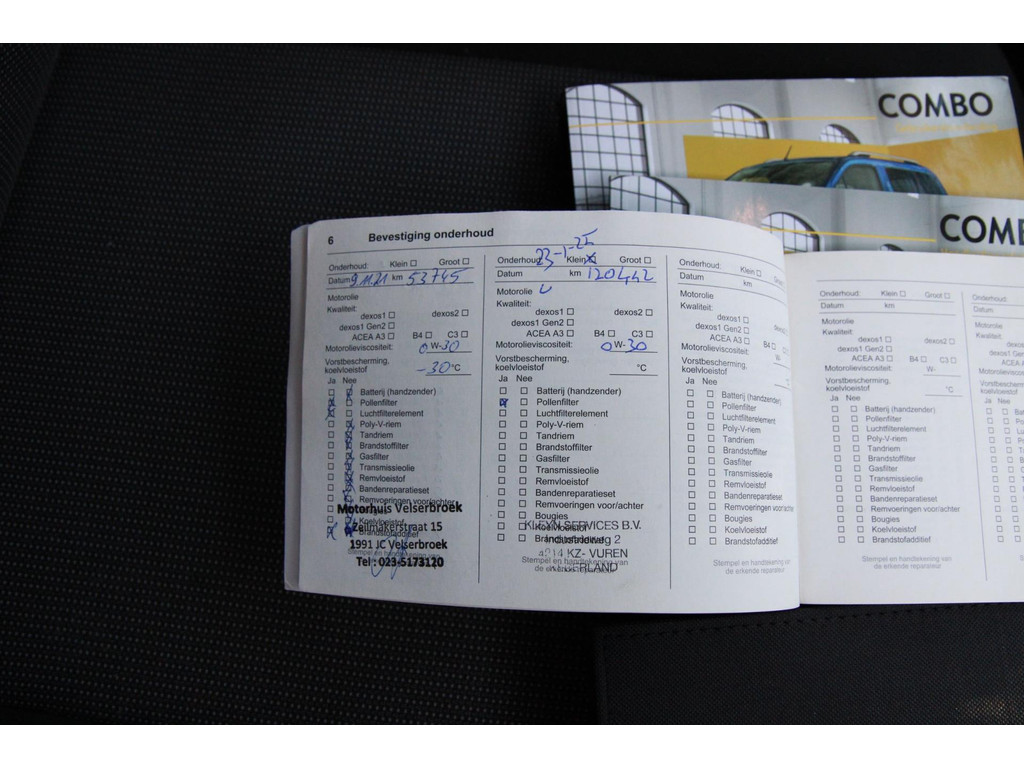 COMBO
COMB
6 Bevestiging onderhoud
Onderhoud: Klein Groot
Datum 9.11.21 km 53745
Motorolie
Kwaliteit:
dexos1 dexos2
dexos1 Gen2
ACEA A3 B4 C3
Motorolieviscositeit: 0 W-30
Vorstbescherming,
koelvloeistof -30 °C
Ja Nee
Batterij (handzender)
Pollenfilter
Luchtfilterelement
Poly-V-riem
Tandriem
Brandstoffilter
Gasfilter
Transmissieolie
Remvloeistof
Bandenreparatieset
Remvoeringen voor/achter
Bougies
Koelvloeistof
Brandstofadditief
Motorhuis Velserbroek
Zeilmakerstraat 15
1991 JC Velserbroek
Tel : 023-5173120
Stempel en handtekening van
Onderhoud: Klein Groot
23-1-25
Datum km 120442
Motorolie
Kwaliteit:
dexos1 dexos2
dexos1 Gen2
ACEA A3 B4 C3
Motorolieviscositeit: 0 W-30
Vorstbescherming,
koelvloeistof °C
Ja Nee
Batterij (handzender)
Pollenfilter
Luchtfilterelement
Poly-V-riem
Tandriem
Brandstoffilter
Gasfilter
Transmissieolie
Remvloeistof
Bandenreparatieset
Remvoeringen voor/achter
Bougies
Koelvloeistof
Brandstofadditief
KLEYN SERVICES B.V.
Industrieweg 2
4214 KZ- VUREN
Stempel en handtekening van
de erkende reparateur
Onderhoud: Klein Groot
Datum km
Motorolie
Kwaliteit:
dexos1
dexos1 Gen2
ACEA A3 B4
Motorolieviscositeit: W-
Vorstbescherming,
koelvloeistof
Ja Nee
Batterij (handzender)
Pollenfilter
Luchtfilterelement
Poly-V-riem
Tandriem
Brandstoffilter
Gasfilter
Transmissieolie
Remvloeistof
Bandenreparatieset
Remvoeringen voor/achter
Bougies
Koelvloeistof
Brandstofadditief
Stempel en handtekening van
de erkende reparateur
Onderhoud: Klein Groot
Datum km
Motorolie
Kwaliteit:
dexos1 dexos2
dexos1 Gen2
ACEA A3 B4 C3
Motorolieviscositeit: W-
Vorstbescherming,
koelvloeistof °C
Ja Nee
Batterij (handzender)
Pollenfilter
Luchtfilterelement
Poly-V-riem
Tandriem
Brandstoffilter
Gasfilter
Transmissieolie
Remvloeistof
Bandenreparatieset
Remvoeringen voor/achter
Bougies
Koelvloeistof
Brandstofadditief
Stempel en handtekening van
de erkende reparateur
Onderhoud:
Datum
Motorolie
Kwaliteit:
dexos1
dexos1 Gen
ACEA A3
Motorolieviscositeit
Vorstbescherming
koelvloeistof
Ja Nee